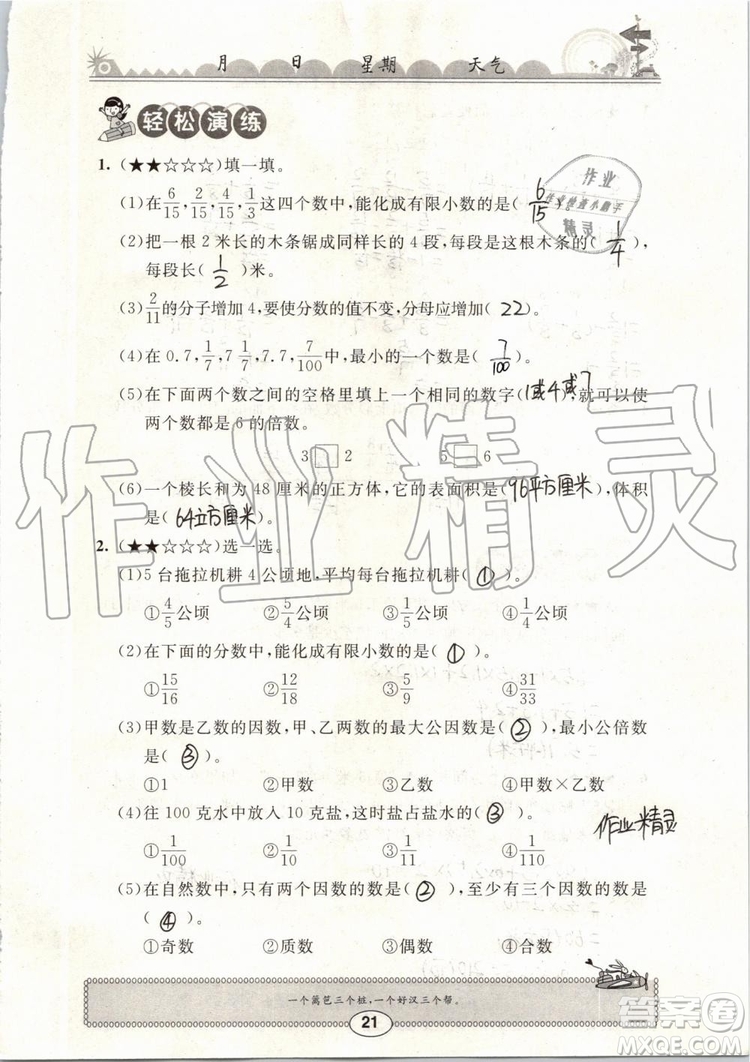 月 日 星期 天气
轻松演练
1. (★★☆☆☆)填一填。
(1)在6/15,2/15,4/15,1/3这四个数中,能化成有限小数的是( 6/15
作业
精灵
(2)把一根2米长的木条锯成同样长的4段,每段是这根木条的( 1/4 ),
每段长( 1/2 )米。
(3)2/11的分子增加4,要使分数的值不变,分母应增加( 22 )。
(4)在0.7,1/7,7.7,7/100中,最小的一个数是( 7/100 )。
(5)在下面两个数之间的空格里填上一个相同的数字(1或4或7),就可以使
两个数都是6的倍数。
3□2 5□6
(6)一个棱长和为48厘米的正方体,它的表面积是(96平方厘米),体积
是(64立方厘米)。
2. (★★☆☆☆)选一选。
(1)5台拖拉机耕4公顷地,平均每台拖拉机耕( ① )。
①4/5公顷 ②5/4公顷 ③1/5公顷 ④1/4公顷
(2)在下面的分数中,能化成有限小数的是( ① )。
①15/16 ②12/18 ③5/9 ④31/33
(3)甲数是乙数的因数,甲、乙两数的最大公因数是( ② ),最小公倍数
是( ③ )。
①1 ②甲数 ③乙数 ④甲数×乙数
(4)往100克水中放入10克盐,这时盐占盐水的( ③ )。
①1/100 ②1/10 ③1/11 ④1/110
作业精灵
(5)在自然数中,只有两个因数的数是( ② ),至少有三个因数的数是
( ④ )。
①奇数 ②质数 ③偶数 ④合数
一个篱笆三个桩,一个好汉三个帮。
21
作业精灵
答案圈
MXQE.COM